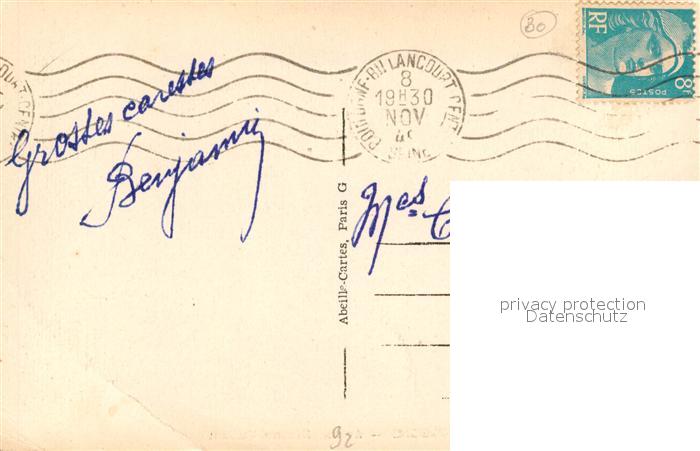 BO
RF
POSTES
8F
BOULOGNE-BILLANCOURT CENT
8
19H30
NOV
SEINE
Grosses caresses
Benjamin
Mes
Abeille-Cartes, Paris G
privacy protection
Datenschutz
92